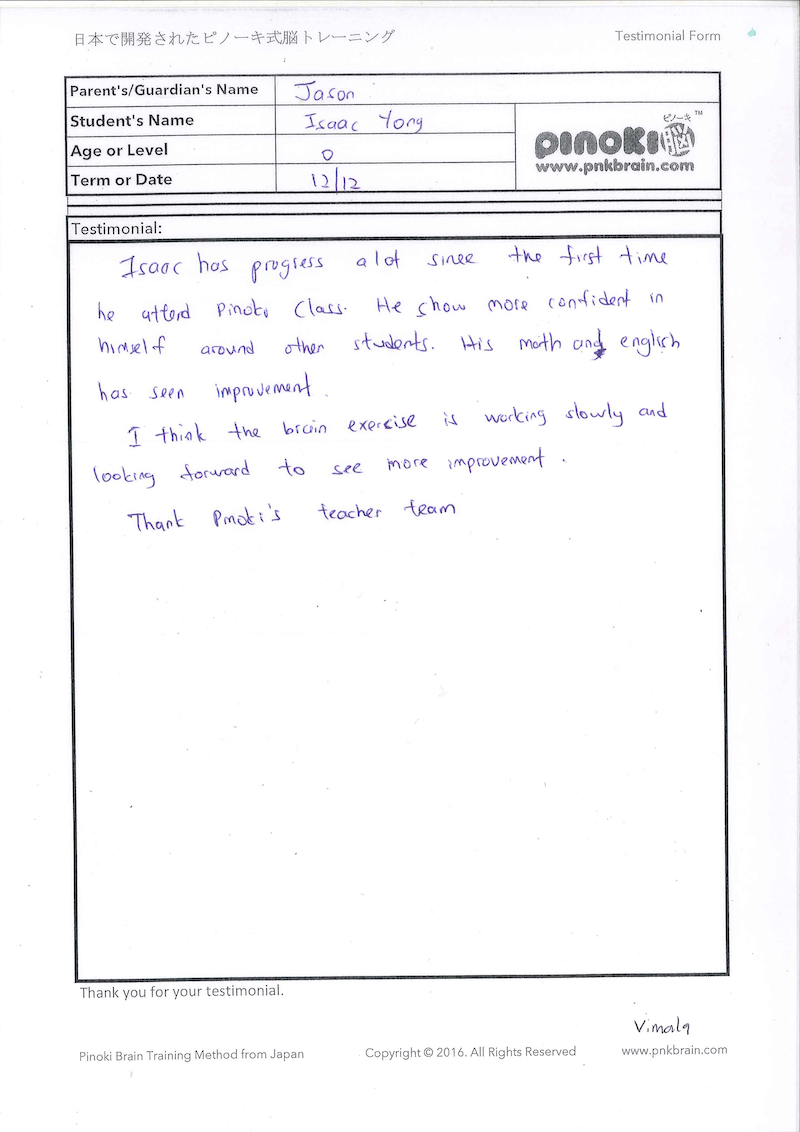 日本で開発されたピノーキ式脳トレーニング Testimonial Form
Parent's/Guardian's Name Jason
Student's Name Isaac Yong
Age or Level 0
Term or Date 12/12
ピノーキ TM
PINOKI 脳
www.pnkbrain.com
Testimonial:
Isaac has progress a lot since the first time
he attend Pinoki Class. He show more confident in
himself around other students. His math and english
has seen improvement.
I think the brain exercise is working slowly and
looking forward to see more improvement.
Thank Pinoki's teacher team
Thank you for your testimonial.
Vimala
Pinoki Brain Training Method from Japan Copyright © 2016. All Rights Reserved www.pnkbrain.com